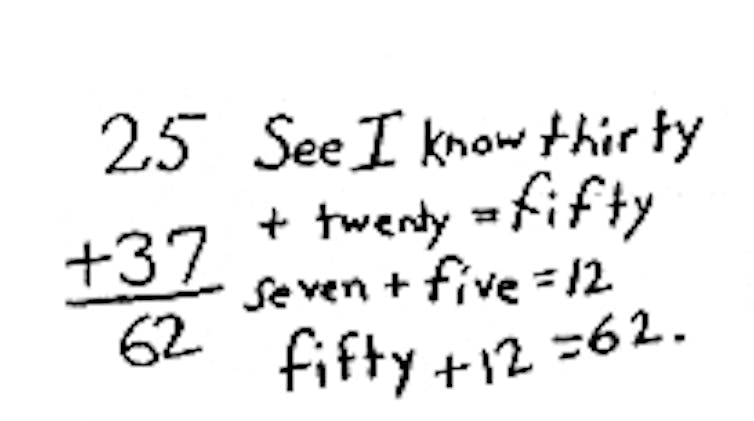 25
+37
62
See I know thirty
+ twenty = fifty
seven + five = 12
fifty + 12 = 62.